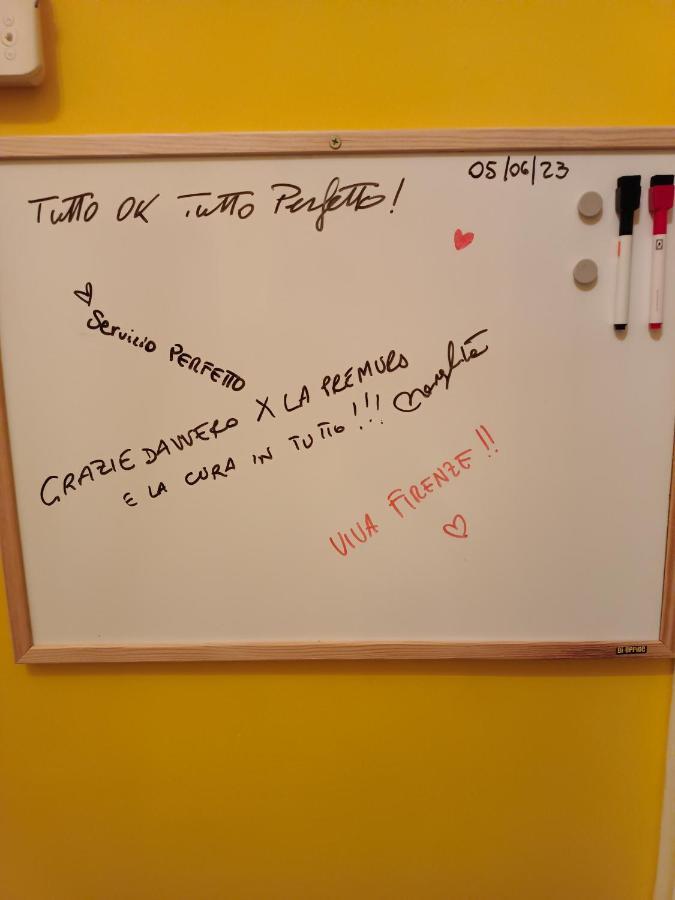 05/06/23
Tutto OK Tutto Perfetto!
Servicio PERFETTO
GRAZIE DAVVERO X LA PREMURA
E LA CURA IN TUTTO!!!
VIVA FIRENZE!!
BI-OFFICE